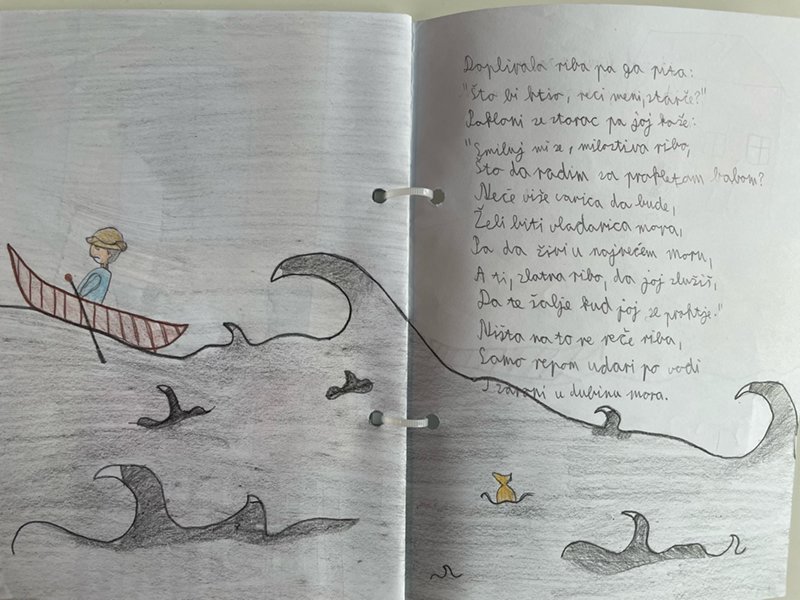 Doplivala riba pa ga pita:
"Što bi htio, reci meni, starče?"
Pokloni se starac pa joj kaže:
"Smiluj mi se, milostiva ribo,
Što da radim sa prokletom babom?
Neče više carica da bude,
Želi biti vladarica mora,
Pa da živi u najvećem moru,
A ti, zlatna ribo, da joj služiš,
Da te šalje kud joj se prohtje."
Ništa na to ne reče riba,
Samo repom udari po vodi
I zaroni u dubinu mora.